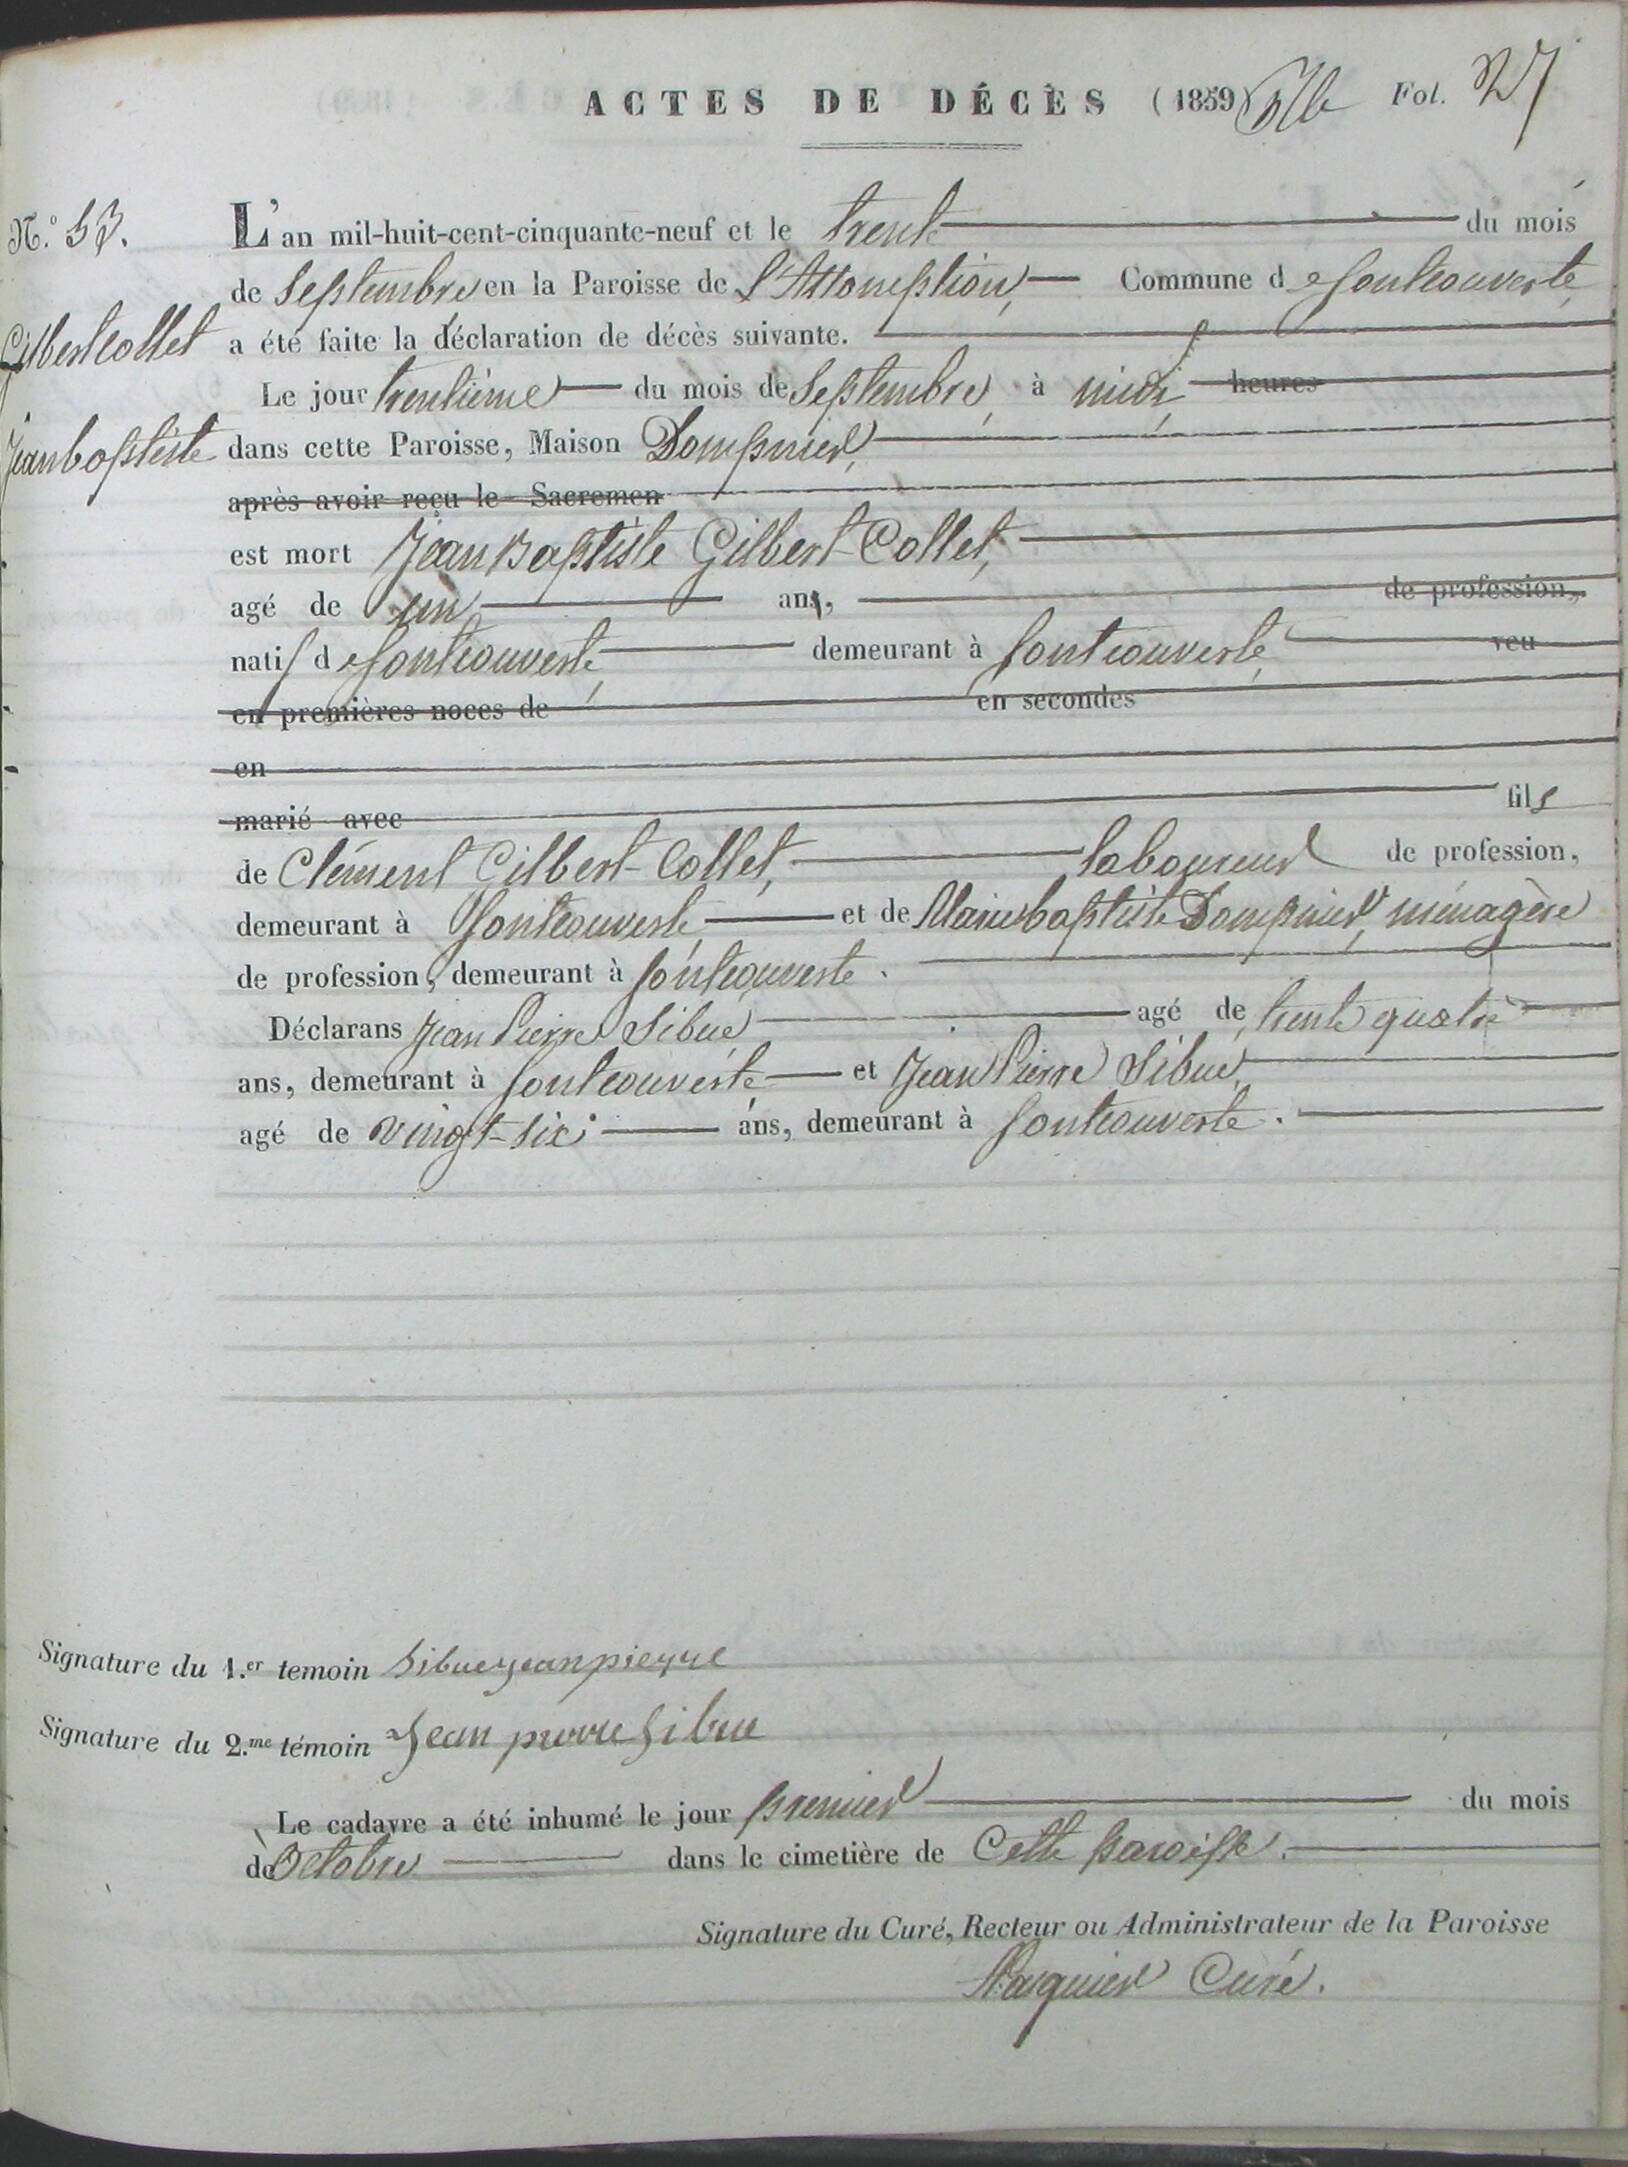 ACTES DE DÉCÈS (1859) Fol. 27
N.º 53.
L'an mil-huit-cent-cinquante-neuf et le trente du mois
de Septembre en la Paroisse de L'Assomption, Commune de fontcouverte,
Gilbert Collet
a été faite la déclaration de décès suivante.
Le jour trentième du mois de Septembre, à midi heures
Jean baptiste
dans cette Paroisse, Maison Dompnier,
après avoir reçu le Sacremen
est mort Jean Baptiste Gilbert-Collet,
agé de un an, de profession,
natif de fontcouverte, demeurant à fontcouverte, veu
en premières noces de en secondes
en
marié avec fils
de Clément Gilbert-Collet, laboureur de profession,
demeurant à fontcouverte et de Marie baptiste Dompnier, ménagère
de profession, demeurant à fontcouverte.
Déclarans Jean Pierre Sibué agé de trente quatre
ans, demeurant à fontcouverte, et Jean Pierre Sibué,
agé de vingt-six ans, demeurant à fontcouverte.
Signature du 1.er temoin Sibue jean pierre
Signature du 2.me témoin Jean pierre Sibue
Le cadavre a été inhumé le jour premier du mois
de Octobre dans le cimetière de Cette paroisse.
Signature du Curé, Recteur ou Administrateur de la Paroisse
Curé.